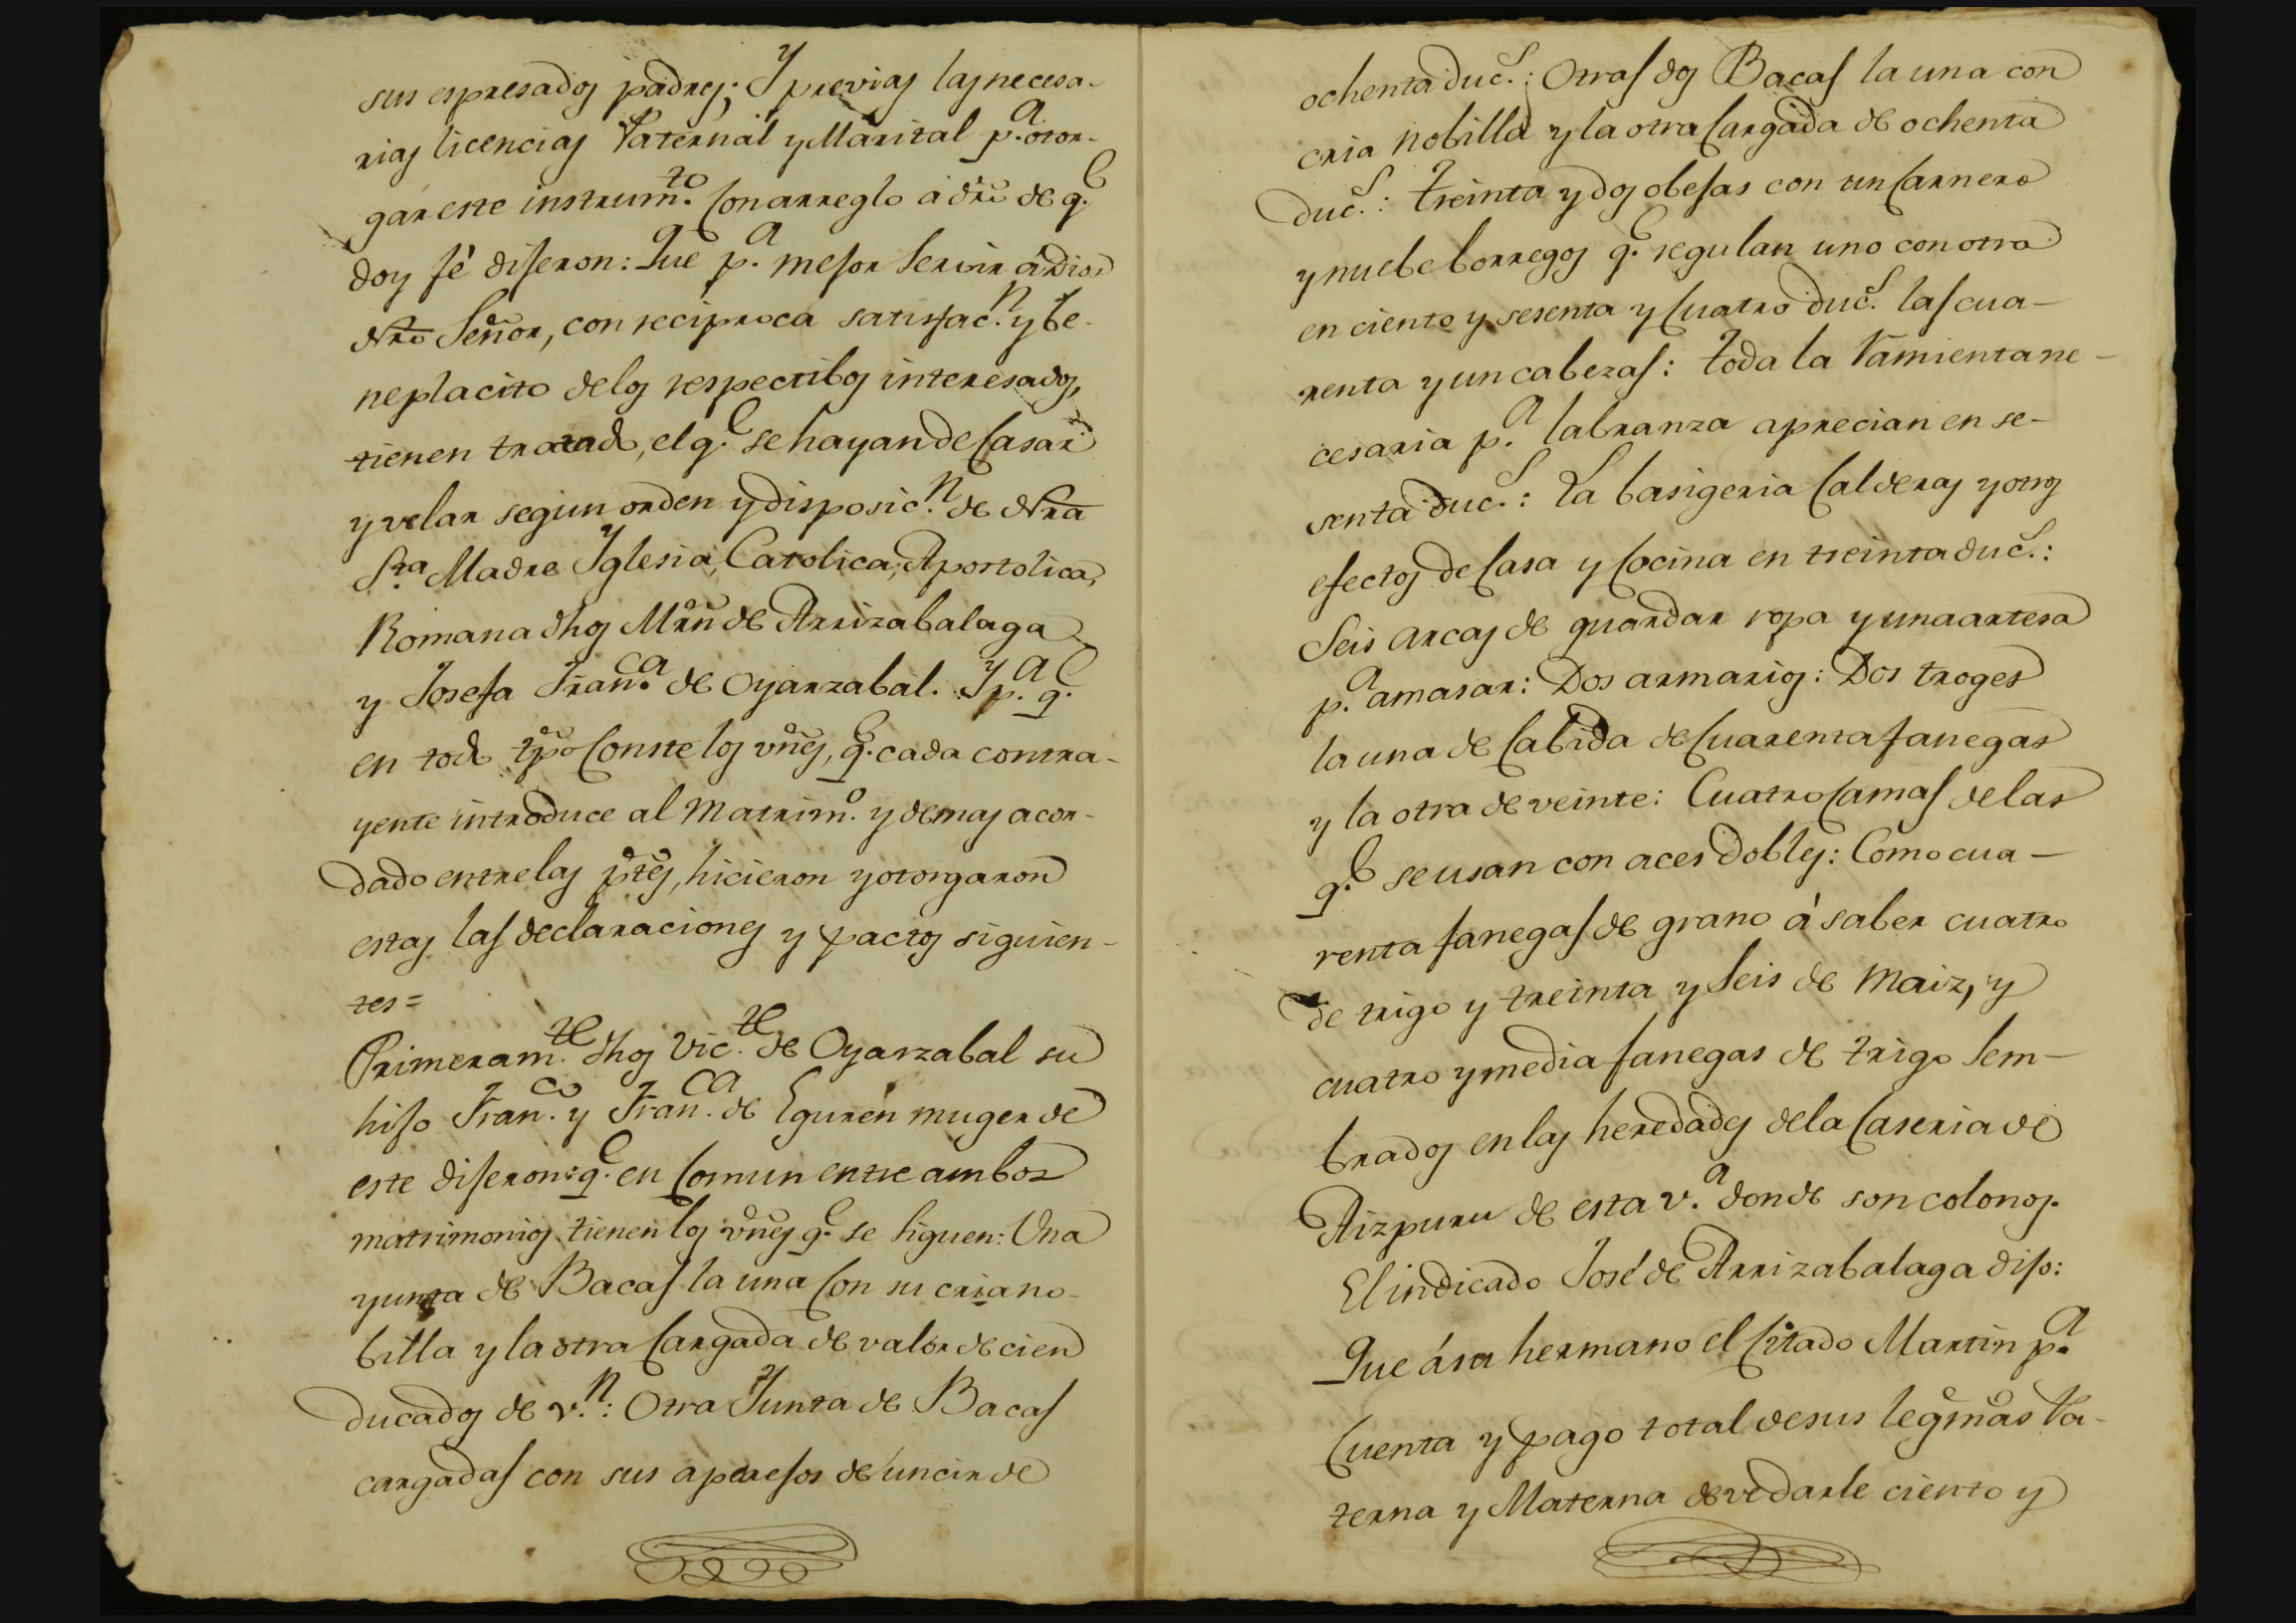 sus espresados padres; Y previas las necesa-
rias licencias Paternal y Marital p.a otor-
gar este instrum.to con arreglo a dro de q.e
doy fé diseron: Que p.a mesor servir á Dios
Nro Señor, con reciproca satisfac.n y be-
neplacito de los respectibos interesados,
tienen tratado, el q.e se hayan de Casar
y velar segun orden y disposic.n de Nra
S.ta Madre Yglesia, Catolica, Apostolica,
Romana dhos Mrn de Arrizabalaga
y Josefa Fran.ca de Oyarzabal. Y p.a q.e
en todo tpo Conste los vnes, q.e cada contra-
yente introduce al Matrim.o y demas acor-
dado entre las ptes, hicieron y otorgaron
estas las declaraciones y pactos siguien-
tes=
Primeram.te dhos Vic.te de Oyarzabal su
hiso Fran.co y Fran.ca de Eguren muger de
este diseron: q.e en Comun entre ambos
matrimonios tienen los vnes q.e se siguen: Una
yunta de Bacas la una Con su cria no-
billa y la otra Cargada de valor de cien
ducados de v.n: Otra Yunta de Bacas
cargadas con sus aperesos de uncir de
ochenta duc.s: Otras dos Bacas la una con
cria nobilla y la otra Cargada de ochenta
duc.s: treinta y dos obesas con un Carnero
y nuebe borregos q.e regulan uno con otro
en ciento y sesenta y Cuatro duc.s las cua-
renta y un cabezas: toda la ramienta ne-
cesaria p.a labranza aprecian en se-
senta duc.s: La basigeria Calderas y otros
efectos de Casa y Cocina en treinta duc.s:
Seis arcas de guardar ropa y una artesa
p.a amasar: Dos armarios: Dos troges
la una de Cabida de Cuarenta fanegas
y la otra de veinte: Cuatro Camas de las
q.e se usan con aces dobles: Como cua-
renta fanegas de grano á saber cuatro
de trigo y treinta y seis de maiz, y
cuatro y media fanegas de trigo sem-
brados en las heredades de la Caseria de
Aizpuru de esta v.a donde son colonos.
El indicado José de Arrizabalaga diso:
Que á su hermano el Citado Martin p.a
Cuenta y pago total de sus legmas Pa-
terna y Materna deve darle ciento y